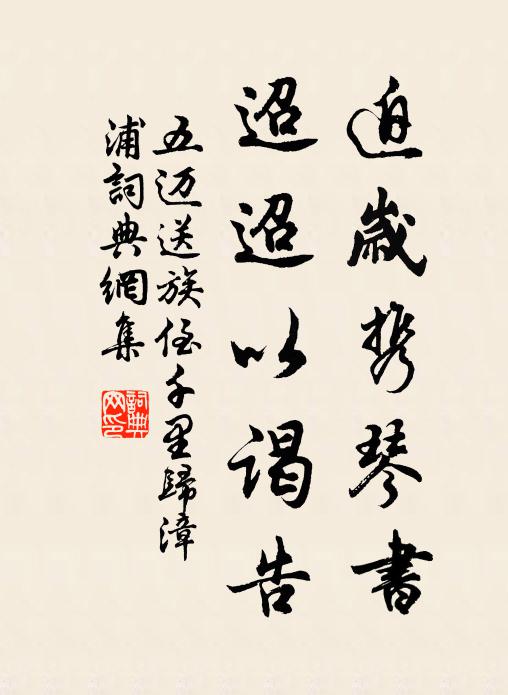 迫歲携琴書
迢迢以謁告
五迈送族侄千里歸漳
浦詞典網集
詞典
网印